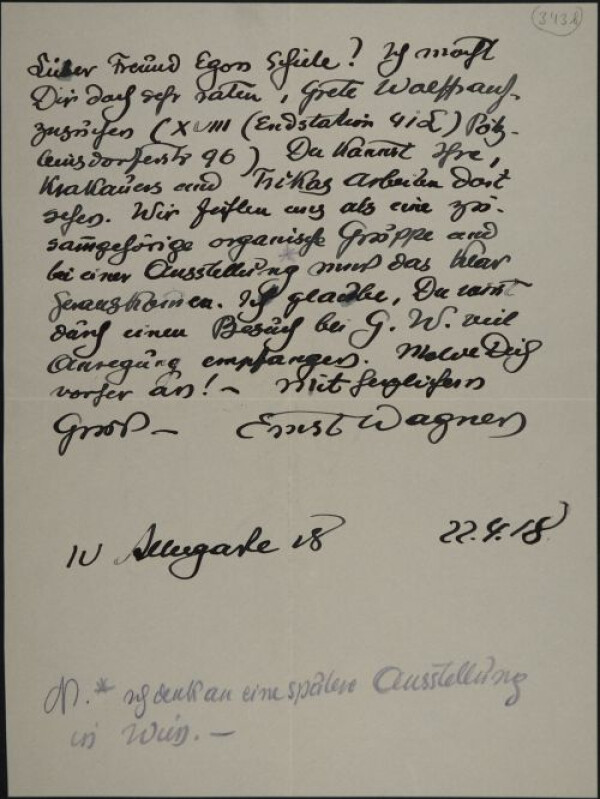 3438
Lieber Freund Egon Schiele! Ich möcht
Dir doch sehr raten, Grete Wolf Krakauer
zusuchen (XVIII (Endstation 41 ) Pötz-
leinsdorferstr 96) Du kannst Ihre,
Krakauers und Trikas Arbeiten dort
sehen. Wir fühlen uns als eine zu-
samgehörige organische Gruppe und
bei einer Ausstellung * muß das klar
herauskommen. Ich glaube, Du wirst
durch einen Besuch bei G. W. viel
Anregung empfangen. Melde Dich
vorher an! – Mit herzlichem
Gruß – Ernst Wagner
IV Alleegasse 18 22.4.18
N. * ich denk an eine spätere Ausstellung
in Wien. –